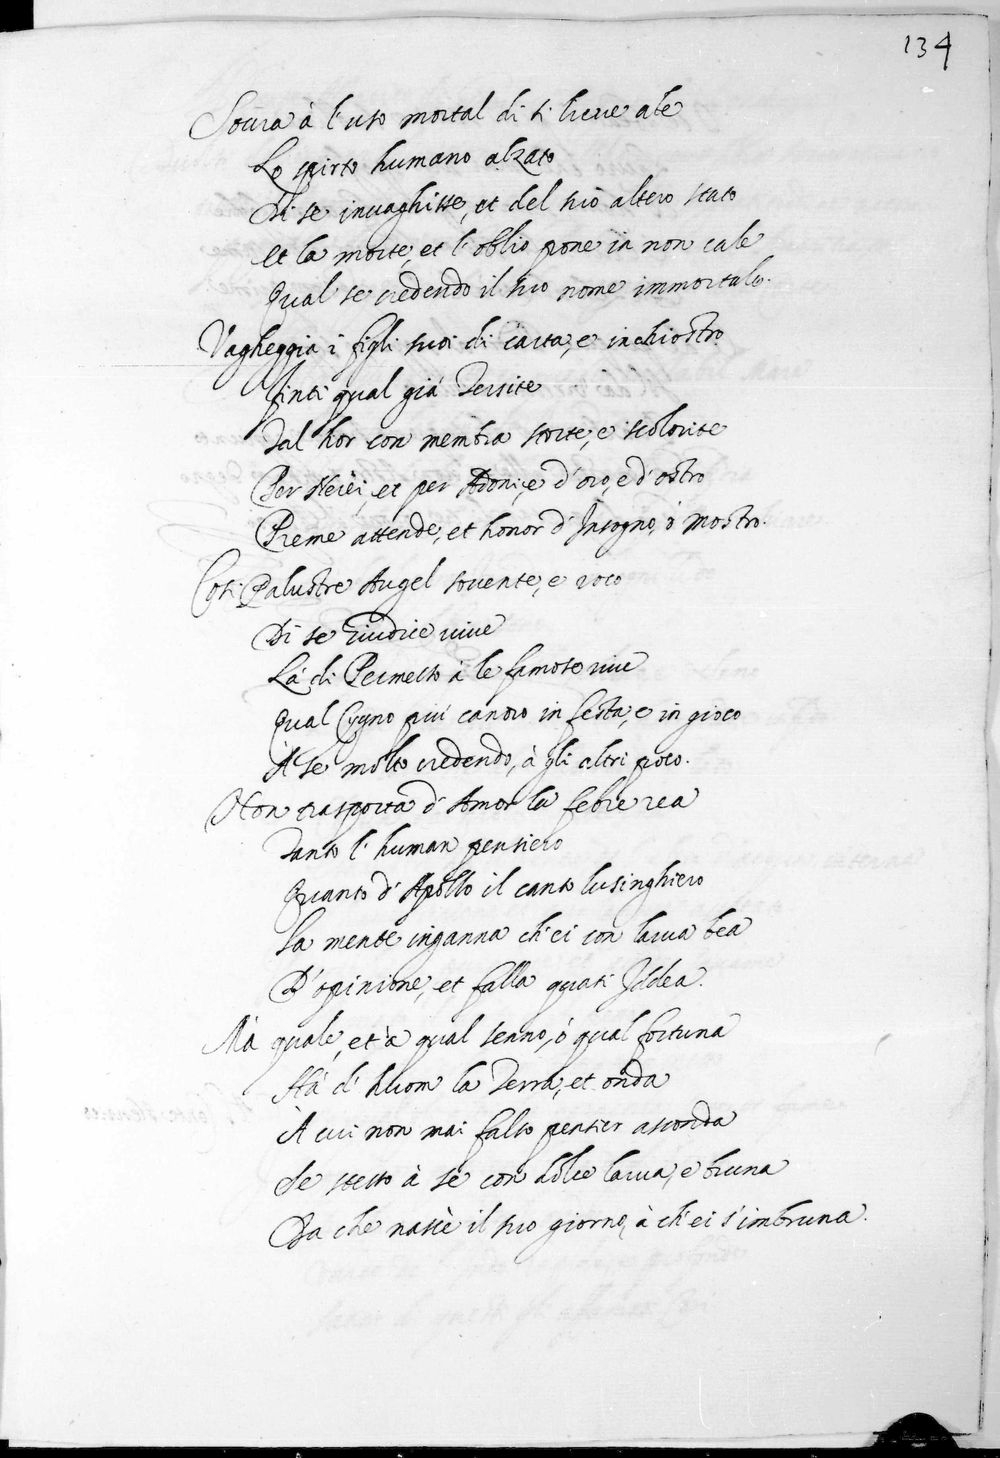 134
Soura à l'uso mortal di sì lieue ale
Lo spirto humano alzato
Di se inuaghisse, et del suo altero stato
Et la morte, et l'oblio pone in non cale
Qual se credendo il suo nome immortale.
Vagheggia i figli suoi di carta, e inchiostro
finti qual già Tersite
Tal hor con membra storte, e scolorite
Per Nerei, et per Adoni, e d'oro, e d'ostro
Preme attende, et honor d'Insogno, ò mostro.
Così Palustre Augel souente, e roco
Di se Giudice uiue
Là di Permesso à le famose riue
Qual Cygno più canoro in festa, e in gioco
À se molto credendo, à gli altri poco.
Non trasporta d'Amor la febre rea
Tanto l'human pensiero
Quanto d'Apollo il canto lusinghiero
La mente inganna ch'ei con larua bea
D'opinione, et falla quasi Iddea.
Mà quale, et à qual senno, ò qual fortuna
Hà d'huom la Terra, et onda
À cui non mai falso pensier asconda
Se stesso à se con dolce larua, e bruna
Da che nasce il suo giorno, à ch'ei s'imbruna.